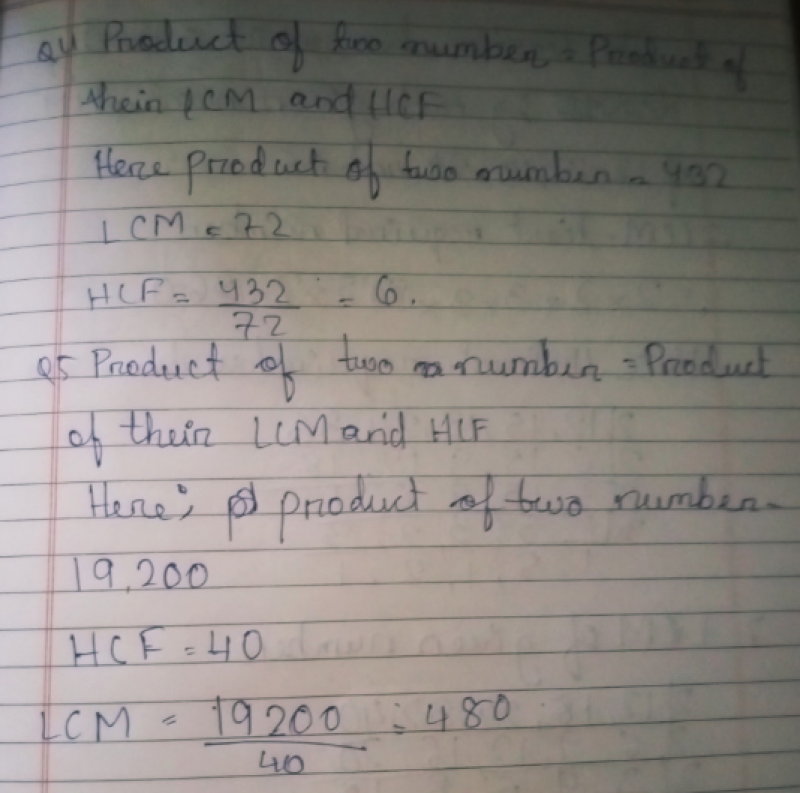 Q4 Product of two number = Product of
their LCM and HCF
Here product of two number = 432
LCM = 72
HCF = 432/72 = 6.
Q5 Product of two number = Product
of their LCM and HCF
Here; product of two number -
19,200
HCF = 40
LCM = 19200/40 = 480